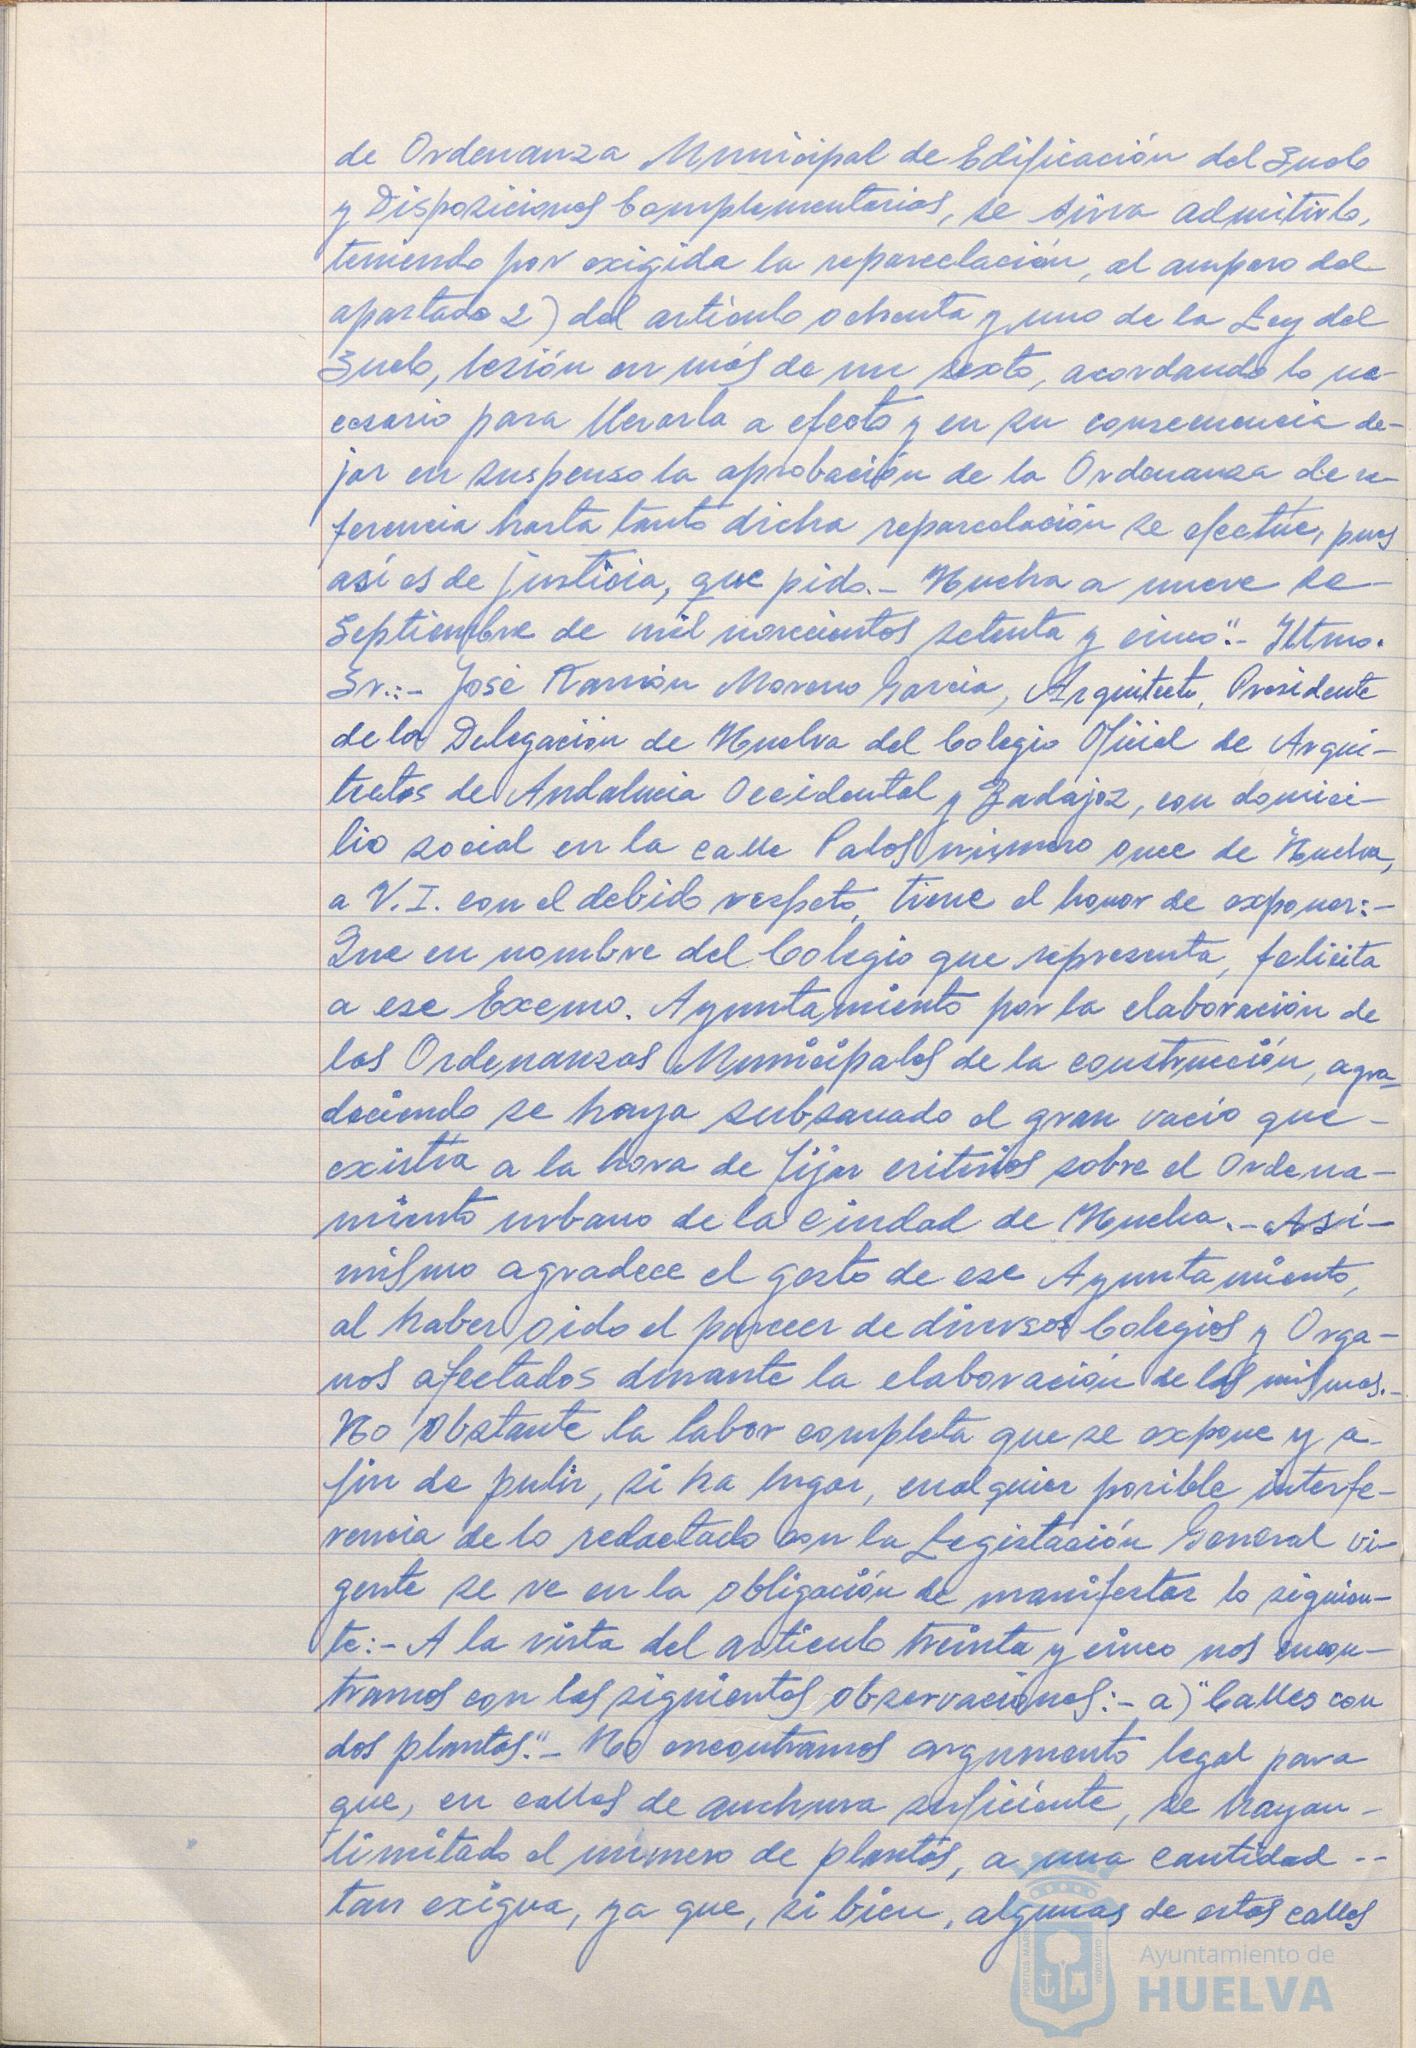 de Ordenanza Municipal de Edificación del Suelo
y Disposiciones Complementarias, se sirva admitirlo,
teniendo por exigida la reparcelación, al amparo del
apartado 2) del artículo ochenta y uno de la Ley del
Suelo, lesión en más de un sexto, acordando lo ne-
cesario para llevarla a efecto y en su consecuencia de-
jar en suspenso la aprobación de la Ordenanza de re-
ferencia hasta tanto dicha reparcelación se efectúe, pues
así es de justicia, que pido.- Huelva a nueve de-
Septiembre de mil novecientos setenta y cinco".- Iltmo.
Sr.:- José Ramón Moreno García, Arquitecto, Presidente
de la Delegación de Huelva del Colegio Oficial de Arqui-
tectos de Andalucia Occidental y Badajoz, con domici-
lio social en la calle Palos número once de Huelva,
a V.I. con el debido respeto, tiene el honor de exponer:-
Que en nombre del Colegio que representa, felicita
a ese Excmo. Ayuntamiento por la elaboración de
las Ordenanzas Municipales de la construcción, agra-
deciendo se haya subsanado el gran vacío que-
existía a la hora de fijar criterios sobre el Ordena-
miento urbano de la ciudad de Huelva.- Asi-
mismo agradece el gesto de ese Ayuntamiento,
al haber oido el parecer de diversos Colegios y Orga-
nos afectados durante la elaboración de las mismas.-
No obstante la labor completa que se expone y a-
fin de pulir, si ha lugar, cualquier posible interfe-
rencia de lo redactado con la Legislación General vi-
gente se ve en la obligación de manifestar lo siguien-
te:- A la vista del artículo treinta y cinco nos encon-
tramos con las siguientes observaciones:- a) "Calles con
dos plantas".- No encontramos argumento legal para
que, en calles de anchura suficiente, se hayan-
limitado el número de plantas, a una cantidad --
tan exigua, ya que, si bien, algunas de estas calles
PORTUS MARIS CUSTODIA
Ayuntamiento de
HUELVA